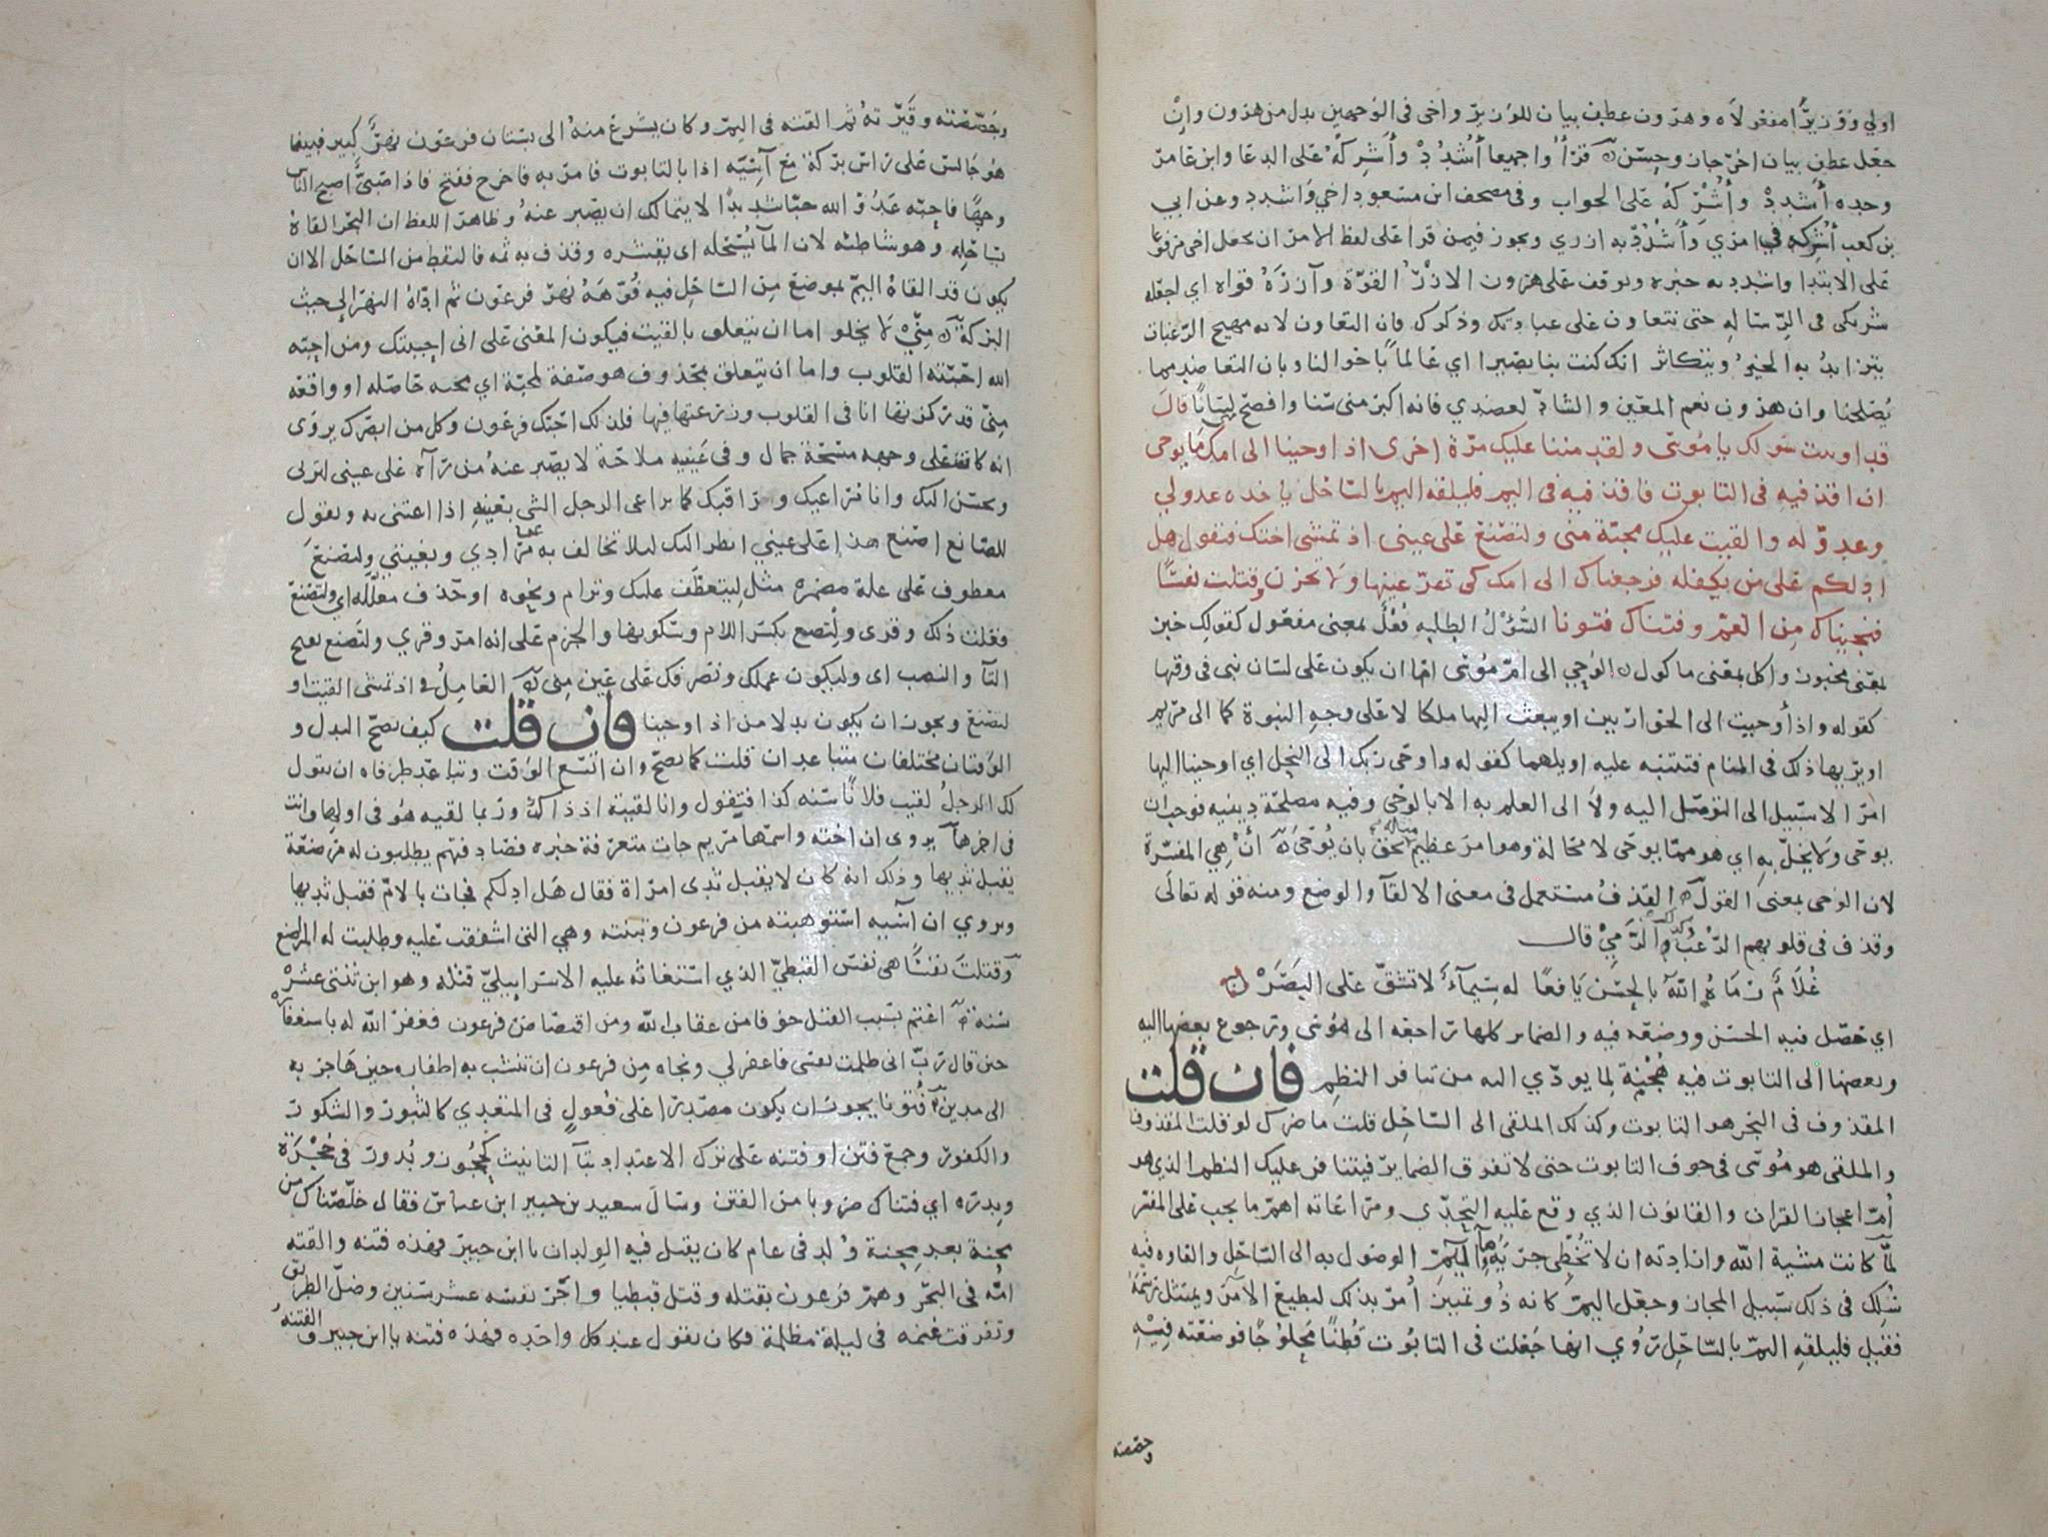 اولي وزيرا مفعولاه وهرون عطف بيان للوزير واخي في الوجهين بدل من هرون وان
جعل عطف بيان اخر جاز وحسن قرأوا جميعا أشدد وأشركه على الدعا وابن عامر
وحده أشدد وأُشركه على الجواب وفي مصحف ابن مسعود اخي واشدد وعن ابي
بن كعب أشركه في امري وأشدد به ازري ويجوز فيمن قرا على لفظ الامر ان يجعل اخي مرفوعا
على الابتدا واشدد به خبره ويوقف على هرون الازر القوة وآزره قواه اي اجعله
شريكي في الرسالة حتى نتعاون على عبادتك وذكرك فان التعاون لانه مهيج الرغبات
يتزايد به الخير ويتكاثر انك كنت بنا بصيرا اي عالما باحوالنا وبان التعاضد مما
يصلحنا وان هرون نعم المعين والشاد لعضدي فانه اكبر مني سنا وافصح لسانا قال
قد اوتيت سولك يا موسى ولقد مننا عليك مرة اخرى اذ اوحينا الى امك ما يوحى
ان اقذفيه في التابوت فاقذفيه في اليم فليلقه اليم بالساحل ياخذه عدو لي
وعدو له والقيت عليك محبة مني ولتصنع على عيني اذ تمشي اختك فتقول هل
ادلكم على من يكفله فرجعناك الى امك كي تقر عينها ولا تحزن وقتلت نفسا
فنجيناك من الغم وفتناك فتونا السؤل الطلبه فُعْل بمعنى مفعول كقولك خبز
بمعنى مخبوز واكل بمعنى ماكول الوحي الى ام موسى اما ان يكون على لسان نبي في وقتها
كقوله واذ أوحيت الى الحواريين او يبعث اليها ملكا لا على وجه النبوة كما الى مريم
او يريها ذلك في المنام فتتنبه عليه او يلهمها كقوله واوحى ربك الى النحل اي اوحينا اليها
امرا لا سبيل الى التوصل اليه ولا الى العلم به الا بالوحي وفيه مصلحة دينيه فوجب ان
يوحى ولا يخل به اي هو مما يوحى لا محالة وهو امر عظيم مثاله يحق بان يُوحَى أنْ هي المفسرة
لان الوحي بمعنى القول القذف مستعمل في معنى الالقآ والوضع ومنه قوله تعالى
وقذف في قلوبهم الرعب وكذلك الرمي قال
غُلَامٌ رَمَاهُ اللهُ بالحسن يَافعًا له سيمآءُ لا تشق على البَصَرْ
اي حصل فيه الحسن ووضعه فيه والضمائر كلها راجعه الى موسى ورجوع بعضها اليه
وبعضها الى التابوت فيه هُجْنة لما يودي اليه من تنافر النظم فان قلت
المقذوف في البحر هو التابوت وكذلك الملقى الى الساحل قلت ما ضرك لو قلت المقذوف
والملقى هو موسى في جوف التابوت حتى لا تفرق الضماير فيتنافر عليك النظم الذي هو
أم اعجاز القران والقانون الذي وقع عليه التحدي ومراعاته اهم ما يجب على المفسر
لمّا كانت مشية الله وارادته ان لا تُخطِي جرية مآء اليم الوصول به الى الساحل والقاه فيه
سُلك في ذلك سبيل المجاز وجعل اليم كانه ذو تمييز أُمر بذلك ليطيع الامر ويمتثل رسمه
فقيل فليلقه اليم بالساحل رُوي انها جعلت في التابوت قطنا محلوجا فوضعته فيه
وجصصته
وجصصته وقيرته ثم القته في اليم وكان يشرع منه الى بستان فرعون نهر كبير فبينما
هو جالس على راس بركة مع آسيه اذا بالتابوت فامر به فاخرج ففتح فاذا صبيّ اصبح الناس
وجها فاحبه عدو الله حبا شديدا لا يتمالك ان يصبر عنه وظاهر اللفظ ان البحر القاه
بساحله وهو شاطئه لان المآ يسحله اى يقشره وقذف به ثمه فالتقط من الساحل الا ان
يكون قد القاه اليم بموضع من الساحل فيه فُوّهَة نهر فرعون ثم اداه النهر الى حيث
البركة منّي لا يخلو اما ان يتعلق بالقيت فيكون المعنى على اني احببتك ومن احبه
الله احبته القلوب واما ان يتعلق بمحذوف هو صفة لمحبة اي محبه حاصله او واقعه
منّي قد ركزتها انا في القلوب وزرعتها فيها فلذلك احبك فرعون وكل من ابصرك يروى
انه كانت على وجهه مسحة جمال وفي عينيه ملاحة لا يصبر عنه من رآه على عيني لتربى
ويحسن اليك وانا مراعيك ومراقبك كما يراعى الرجل الشي بعينه اذا اعتنى به ويقول
للصانع اصنع هذا على عيني انظر اليك ليلا تخالف به عن مرادي وبغيتي ولتصنع
معطوف على علة مضمرة مثل ليتعطف عليك وترام ونحوه او حذف معلله اي ولتصنع
فعلت ذلك وقرى ولتصنع بكسر اللام وسكونها والجزم على انه امر وقري ولتصنع بفتح
التآ والنصب اى وليكون عملك وتصرفك على عين مني العامل في اذ تمشى القيت او
لتصنع ويجوز ان يكون بدلا من اذ اوحينا فان قلت كيف يصح البدل و
الوقتان مختلفان متباعدان قلت كما يصح وان اتسع الوقت وتباعد طرفاه ان يقول
لك الرجل لقيت فلانا سنه كذا فتقول وانا لقيته اذ ذاك وربما لقيه هو في اولها وانت
في اخرها يروى ان اخته واسمها مريم جات متعرفة خبره فصادفتهم يطلبون له مرضعة
يقبل ثديها وذلك انه كان لا يقبل ثدى امراة فقال هل ادلكم فجات بالام فقبل ثديها
ويروي ان آسيه استوهبته من فرعون وتبنته وهي التى اشفقت عليه وطلبت له المراضع
وقتلت نفسا هى نفس القبطيّ الذي استغاثه عليه الاسراييليّ قتله وهو ابن ثنتى عشر
سنه اغتم بسبب القتل خوفا من عقاب الله ومن اقتصاص فرعون فغفر الله له باستغفاره
حين قال رب اني ظلمت نفسى فاغفر لي ونجاه من فرعون ان تنشب به اظفاره حين هاجر به
الى مدين فُتونا يجوز ان يكون مصدرا على فُعول في المتعدي كالثبور والشكور
والكفور وجمع فتن او فتنه على ترك الاعتداد بتآ التانيث كحجوز وبُدور في حُجْزة
وبدره اي فتناك ضروبا من الفتن وسال سعيد بن جبير ابن عباس فقال خلصناك من
محنة بعد محنة وُلد في عام كان يقتل فيه الولدان يا ابن جبير فهذه فتنه والقته
امه في البحر وهم فرعون بقتله وقتل قبطيا واجّر نفسه عشر سنين وضل الطريق
وتفرقت غنمه في ليلة مظلمة فكان يقول عند كل واحده فهذه فتنه يا ابن جبير والفتنه